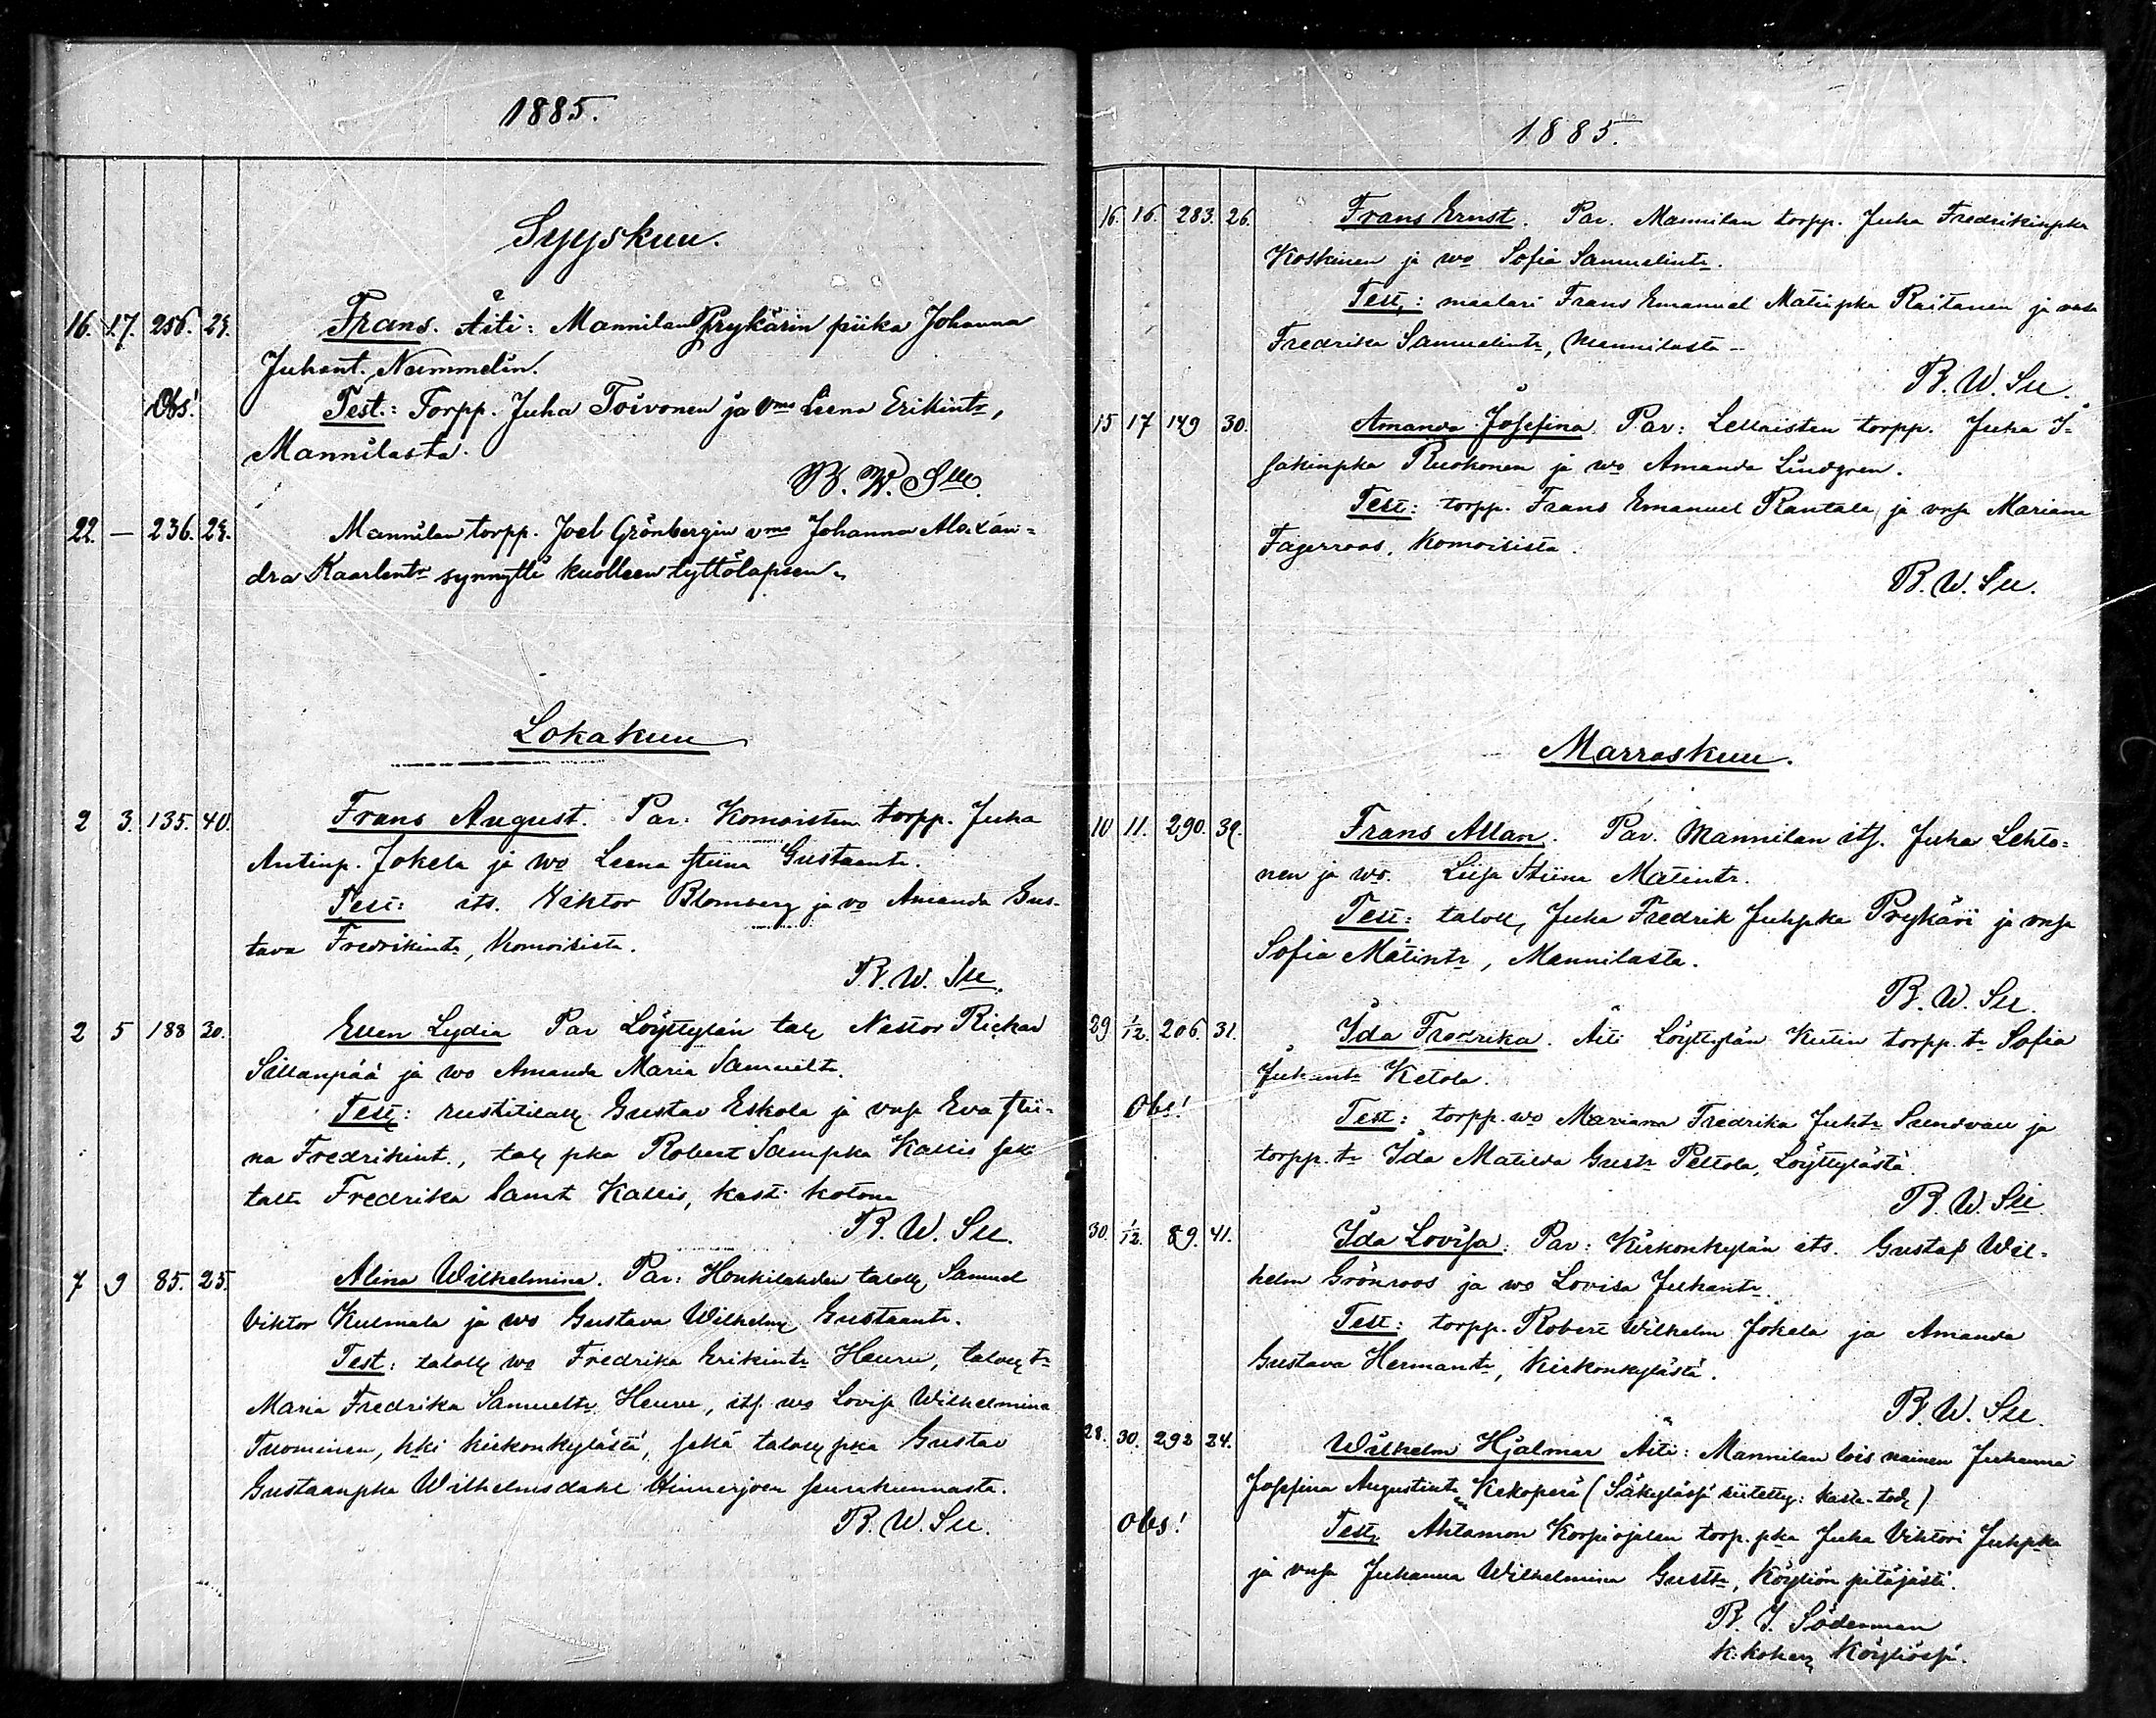 1885.
Syyskuu.
16. 17. 256. 29. Frans. Äiti: Mannilan Prykärin piika Johanna
Juhant. Nummelin.
Obs! Test.: Torpp. Juha Toivonen ja vmo Leena Erikintr,
Mannilasta.
B. W. Sll.
22. — 236. 29. Mannilan torpp. Joel Grönbergin vmo Johanna Alexan=
dra Kaarlentr synnytti kuolleen tyttölapsen.
Lokakuu
2 3. 135. 40. Frans August. Par: Komoisten torpp. Juha
Antinp. Jokela ja wo Leena Stiina Gustaantr.
Test: its. Wiktor Blomberg ja vo Amanda Gus-
tava Fredrikintr, Komoisista.
B. W. Sll.
2 5 188 30. Ellen Lydia Par Löyttylän tall Nestor Rickard
Sillanpää ja wo Amanda Maria Samueltr.
Test: rustitilall Gustav Eskola ja vmsa Eva Stii-
na Fredrikint., tall pka Robert Sampka Kallis sekä
taltr Fredrika Samt Kallis, kast. kotona
B. W. Sll.
7 9 85. 25. Alina Wilhelmina. Par: Honkilahden taloll Samuel
Viktor Kulmala ja wo Gustava Wilhelm Gustaantr.
Test: taloll wo Fredrika Erikintr Heuru, taloll tr
Maria Fredrika Samueltr Heuru, its. wo Lovisa Wilhelmina
Tuominen, kki kirkonkylästä, sekä taloll pka Gustav
Gustaanpka Wilhelmsdahl Hinnerjoen seurakunnasta.
B. W. Sll.
1885.
16. 16. 283. 26. Frans Ernst. Par. Mannilan torpp. Juha Fredrikinpka
Koskinen ja wo Sofia Samuelintr.
Test.: maalari Frans Emanuel Matinpka Raitanen ja
Fredrika Samuelintr, Mannilasta –
B. W. Sll.
15 17 149 30. Amanda Josefina Par: Lellaisten torpp. Juha I-
sakinpka Ruohonen ja wo Amanda Lindgren.
Test: torpp. Frans Emanuel Rantala ja vmsa Mariana
Fagerroos, Komoisista.
B. W. Sll.
Marraskuu.
10 11. 290. 39. Frans Allan. Par. Mannilan its. Juha Lehto=
nen ja wo. Liisa Stiina Matintr.
Test: taloll, Juha Fredrik Juhpka Prykäri ja vmsa
Sofia Matintr, Mannilasta.
B. W. Sll.
29 1/12. 206. 31. Ida Fredrika. Äiti Löyttylän Kiitin torpp. tr Sofia
Juhantr Ketola.
Obs! Test: torpp. wo Mariana Fredrika Juhtr Sundvall ja
torpp. tr Ida Matilda Gustr Peltola, Löyttylästä.
B. W. Sll
30. 1/12. 89. 41. Ida Lovisa. Par: Kirkonkylän its. Gustaf Wil-
helm Grönroos ja wo Lovisa Juhantr.
Test: torpp. Robert Wilhelm Jokela ja Amanda
Gustava Hermantr, Kirkonkylästä.
B. W. Sll.
28. 30. 292 24. Wilhelm Hjalmar Äiti: Mannilan lois nainen Juhanna
Josefina Augustintr Kekoperä (Säkylässä siitetty: kasta-tod)
Obs! Test. Ahtamon Korpiojalan torp. pka Juha Viktori Juhpka
ja vmsa Juhanna Wilhelmina Gusttr, Köyliön pitäjästä.
B. I. Söderman
K: kokeny Köyliössä.